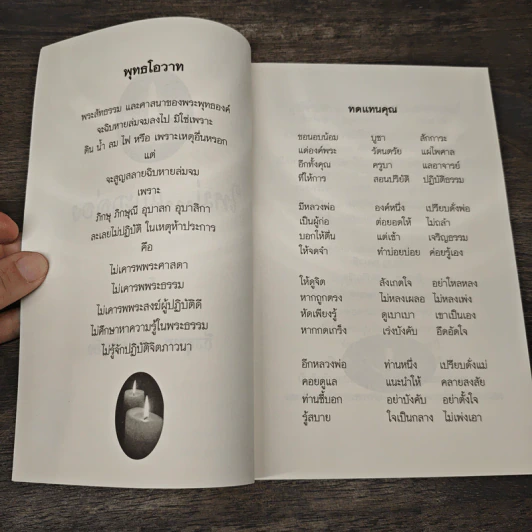 พุทธโอวาท
พระสัทธรรม และศาสนาของพระพุทธองค์
จะฉิบหายล่มจมลงไป มิใช่เพราะ
ดิน น้ำ ลม ไฟ หรือ เพราะเหตุอื่นหรอก
แต่
จะสูญสลายฉิบหายล่มจม
เพราะ
ภิกษุ ภิกษุณี อุบาสก อุบาสิกา
ละเลยไม่ปฏิบัติ ในเหตุห้าประการ
คือ
ไม่เคารพพระศาสดา
ไม่เคารพพระธรรม
ไม่เคารพพระสงฆ์ผู้ปฏิบัติดี
ไม่ศึกษาหาความรู้ในพระธรรม
ไม่รู้จักปฏิบัติจิตภาวนา
ทดแทนคุณ
ขอนอบน้อม บูชา สักการะ
แด่องค์พระ รัตนตรัย แผ่ไพศาล
อีกทั้งคุณ ครูบา แลอาจารย์
ที่ให้การ สอนปริยัติ ปฏิบัติธรรม
มีหลวงพ่อ องค์หนึ่ง เปรียบดั่งพ่อ
เป็นผู้ก่อ ต่อยอดให้ ไม่ถลำ
บอกให้ตื่น แต่เช้า เจริญธรรม
ให้จดจำ ทำบ่อยบ่อย ค่อยรู้เอง
ให้ดูจิต สังเกตใจ อย่าใหลหลง
หากถูกตรง ไม่หลงเผลอ ไม่หลงเพ่ง
หัดเพียงรู้ ดูเบาเบา เขาเป็นเอง
หากกดเกร็ง เร่งบังคับ อึดอัดใจ
อีกหลวงพ่อ ท่านหนึ่ง เปรียบดั่งแม่
คอยดูแล แนะนำให้ คลายสงสัย
ท่านชี้บอก อย่าบังคับ อย่าตั้งใจ
รู้สบาย ใจเป็นกลาง ไม่เพ่งเอา